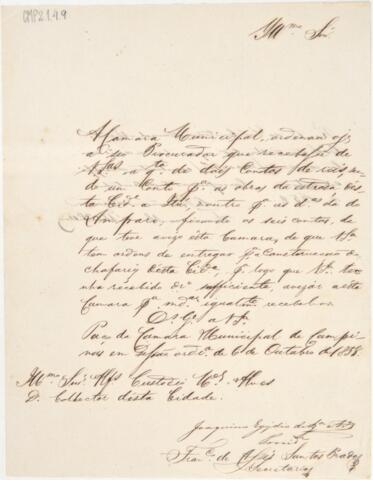 CMP2.1.4.9
Illmo Snr.
A Camara Municipal, ordenou
a seo Procurador que recebesse de
VSas a qta de dois Contos de reis, sendo
de um Conto pa as obras da estrada desta
Cide a Itú, outro pa as da do
Amparo, ficando os seis contos, de
que teve avizo esta Camara, de que VSa
tem ordens de entregar pa Construcção do
chafariz desta Cide, pa logo que VSa tenha
recebido dro sufficiente, avizar a esta
Camara pa mdar igualmte recebel-os
Ds Ge a VSa
Paço da Camara Municipal de Campinas
em Sessão ordra de 6 de Outubro de 1858.
Illmo Snr. Alfs Custodio Mel Alves
D. Collector desta Cidade.
Joaquim Egydio de Sza Aras
Franco de Assis Santos Prado
Secretario